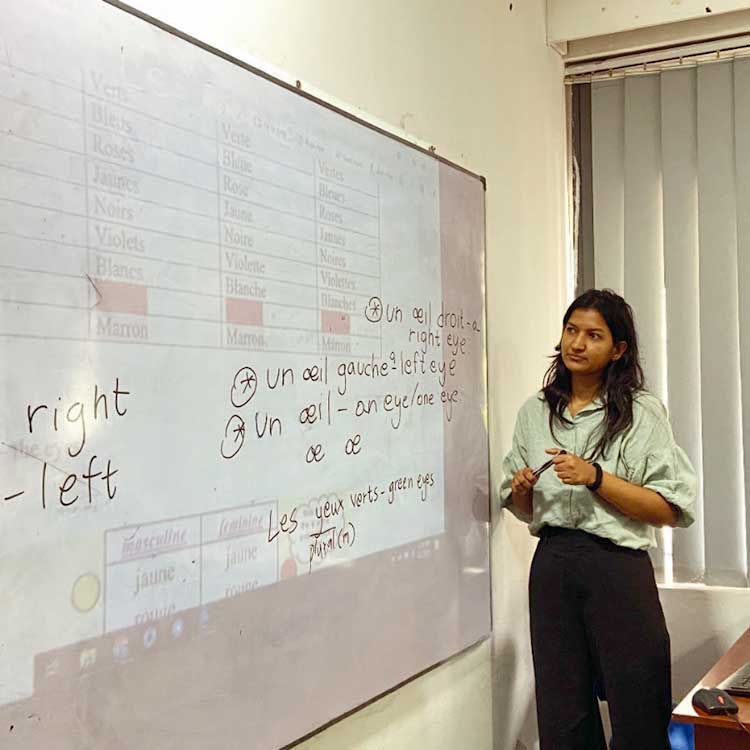 Verts
Bleus Verte
Roses Bleue Vertes
Jaunes Rose Bleues
Noirs Jaune Roses
Violets Noire Jaunes
Blancs Violette Noires
Blanche Violettes
Blanches
Marron Marron Marron
* un œil droit - a
right eye
* un œil gauche = left eye
* un œil - an eye/one eye
œ œ
right
- left
Les yeux verts - green eyes
plural(n)
masculine feminine
jaune jaune
rouge rouge